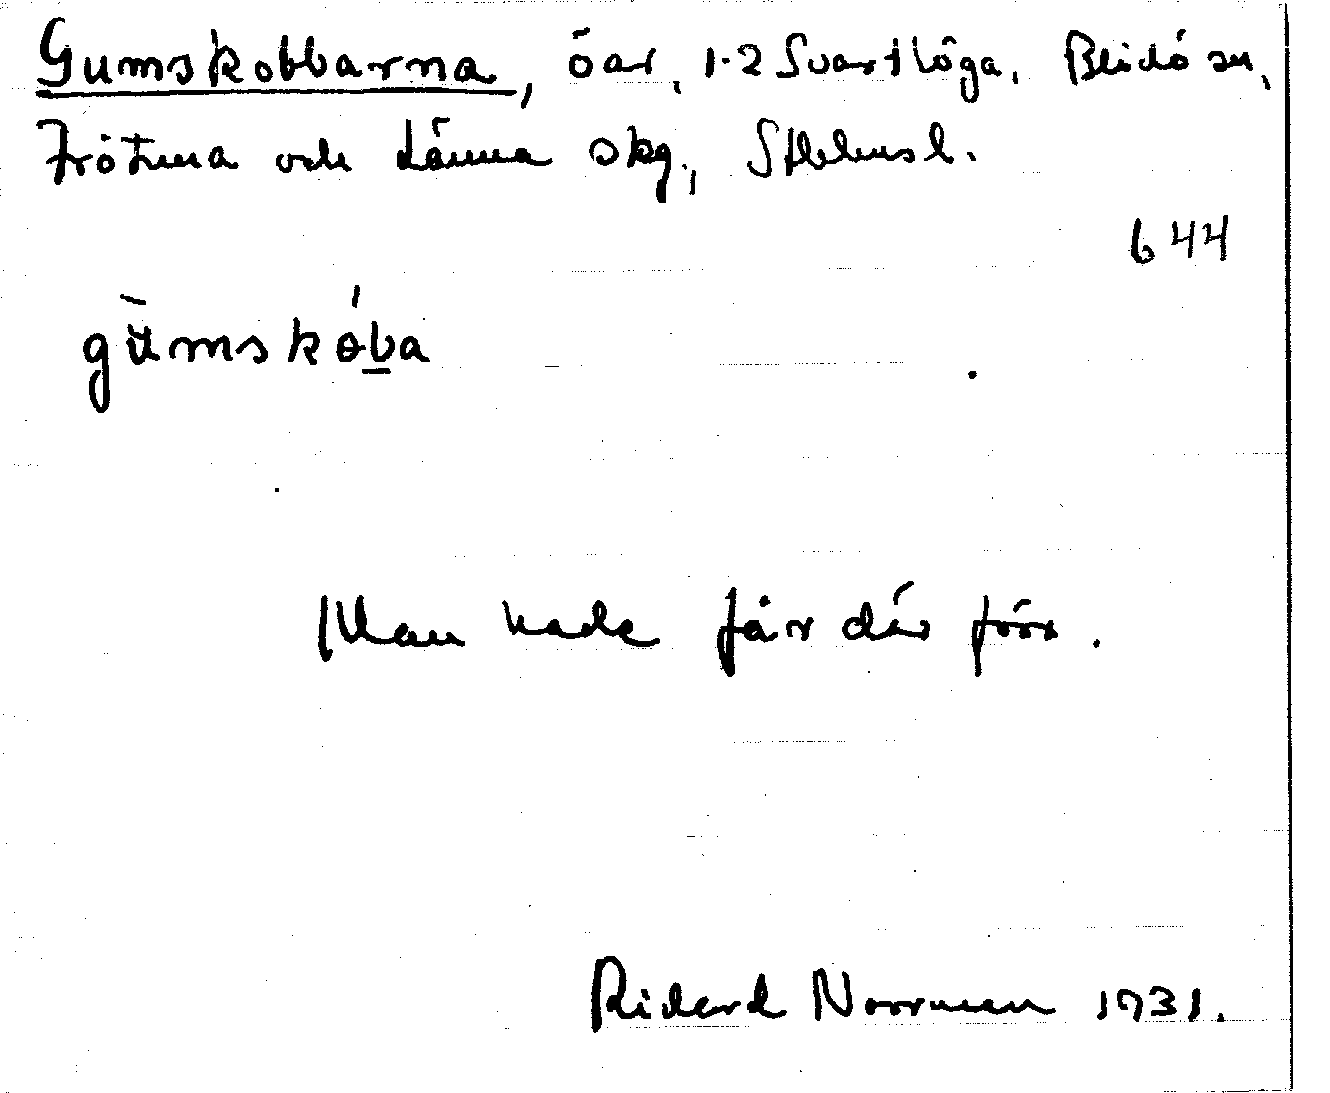 Gumskobbarna, öar, 1-2 Svartlöga, Blidö sn,
Frötuna och Länna skg., Sthlms l.
644
gùmskóba
Man hade får där förr.
Rickard Norrman 1931.